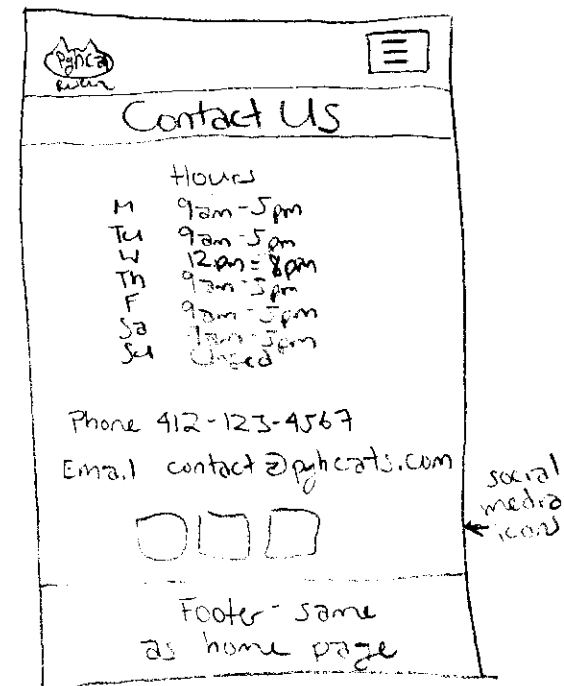 PghCats
Rescue
Contact Us
Hours
M 9am-5pm
Tu 9am-5pm
W 12pm-8pm
Th 9am-5pm
F 9am-5pm
Sa 9am-5pm
Su Closed
Phone 412-123-4567
Email contact@pghcats.com
social
media
icons
Footer - same
as home page